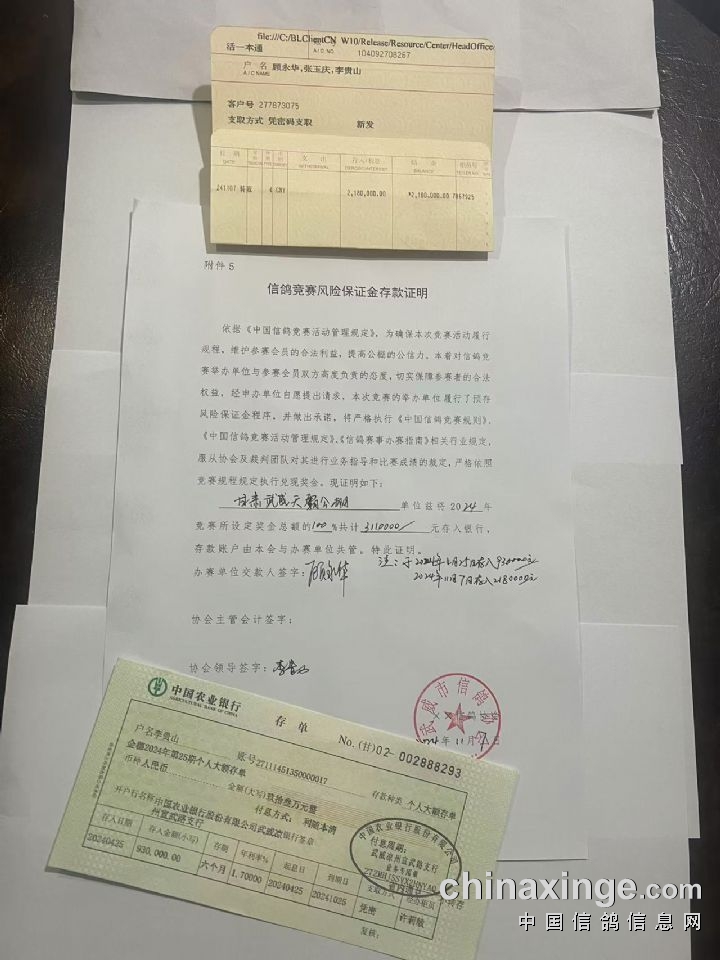 file:///C:/BLClientCN W10/Release/Resource/Center/HeadOffice
活一本通
A/C NO. 104092708267
户名 顾永华,张玉庆,李贵山
A/C NAME
客户号 277873075
支取方式 凭密码支取 新发
日期 支出 存入/利息 结余
DATE WITHDRAWAL DEPOSIT/INTEREST BALANCE
241107 转账 CNY 2,180,000.00 *2,180,000.00 7867925
附件 5
信鸽竞赛风险保证金存款证明
依据《中国信鸽竞赛活动管理规定》，为确保本次竞赛活动履行
规程、维护参赛会员的合法利益，提高公棚的公信力，本着对信鸽竞
赛举办单位与参赛会员双方高度负责的态度，切实保障参赛者的合法
权益，经申办单位自愿提出请求，本次竞赛的举办单位履行了预存
风险保证金程序，并做出承诺，将严格执行《中国信鸽竞赛规则》、
《中国信鸽竞赛活动管理规定》、《信鸽赛事办赛指南》相关行业规定，
服从协会及裁判团队对其进行业务指导和比赛成绩的裁定，严格依照
竞赛规程规定执行兑现奖金。现证明如下：
甘肃武威天霸公棚 单位兹将 2024 年
竞赛所设定奖金总额的 100 %共计 3110000 元存入银行，
存款账户由本会与办赛单位共管。特此证明。
办赛单位交款人签字：顾永华 注：于2024年4月25日存入930000元
2024年11月7日存入2180000元
协会主管会计签字：
协会领导签字：李贵山
武威市信鸽协会
2024年 11月 7日
中国农业银行
AGRICULTURAL BANK OF CHINA
存单 No.(甘)02- 002888293
户名李贵山 账号27111451350000017 存款种类 个人大额存单
金穗2024年第25期个人大额存单
币种人民币 金额(大写)玖拾叁万元整
付息方式: 利随本清
开户行名称中国农业银行股份有限公司武威凉州宣武路支行 银行签章
存入日期 存入金额(小写) 存期 年利率% 起息日 到期日 支取方式 经办柜员
20240425 930,000.00 六个月 1.70000 20240425 20241025 凭密 许莉敏
中国农业银行股份有限公司
付息周期:
武威凉州宣武路支行
业务专用章
复核:
chinaxinge.com
中国信鸽信息网